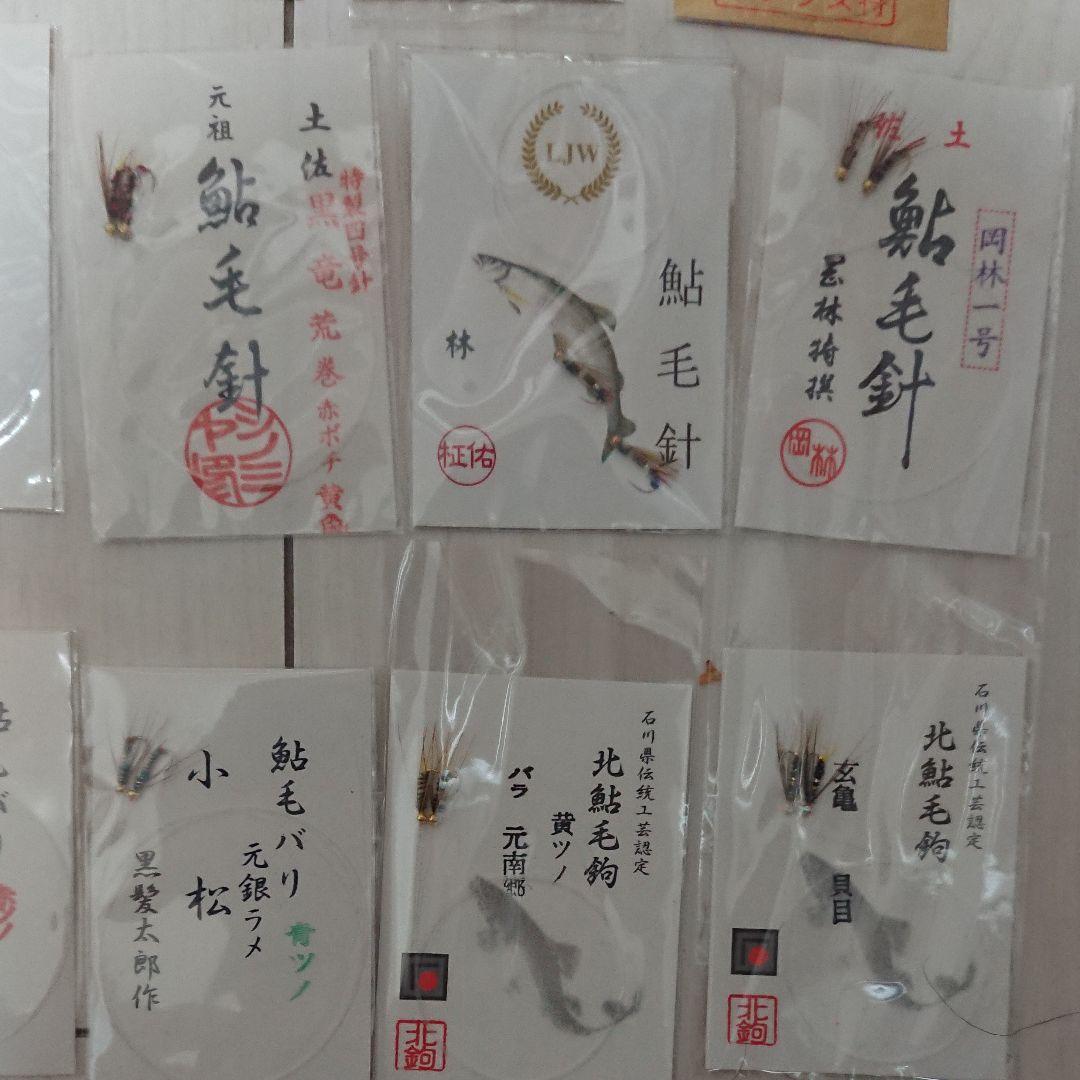 元祖
鮎毛針
土佐
特製四番針
黒竜荒巻赤ボチ黄
LJW
鮎毛針
林
柾佑
土
鮎毛針
岡林一号
岡林
鮎毛バリ
元銀ラメ
青ツノ
小松
黒髪太郎作
石川県伝統工芸認定
北鮎毛鉤
黄ツノ
バラ
元南郷
北鉤
石川県伝統工芸認定
北鮎毛鉤
玄亀
貝目
北鉤